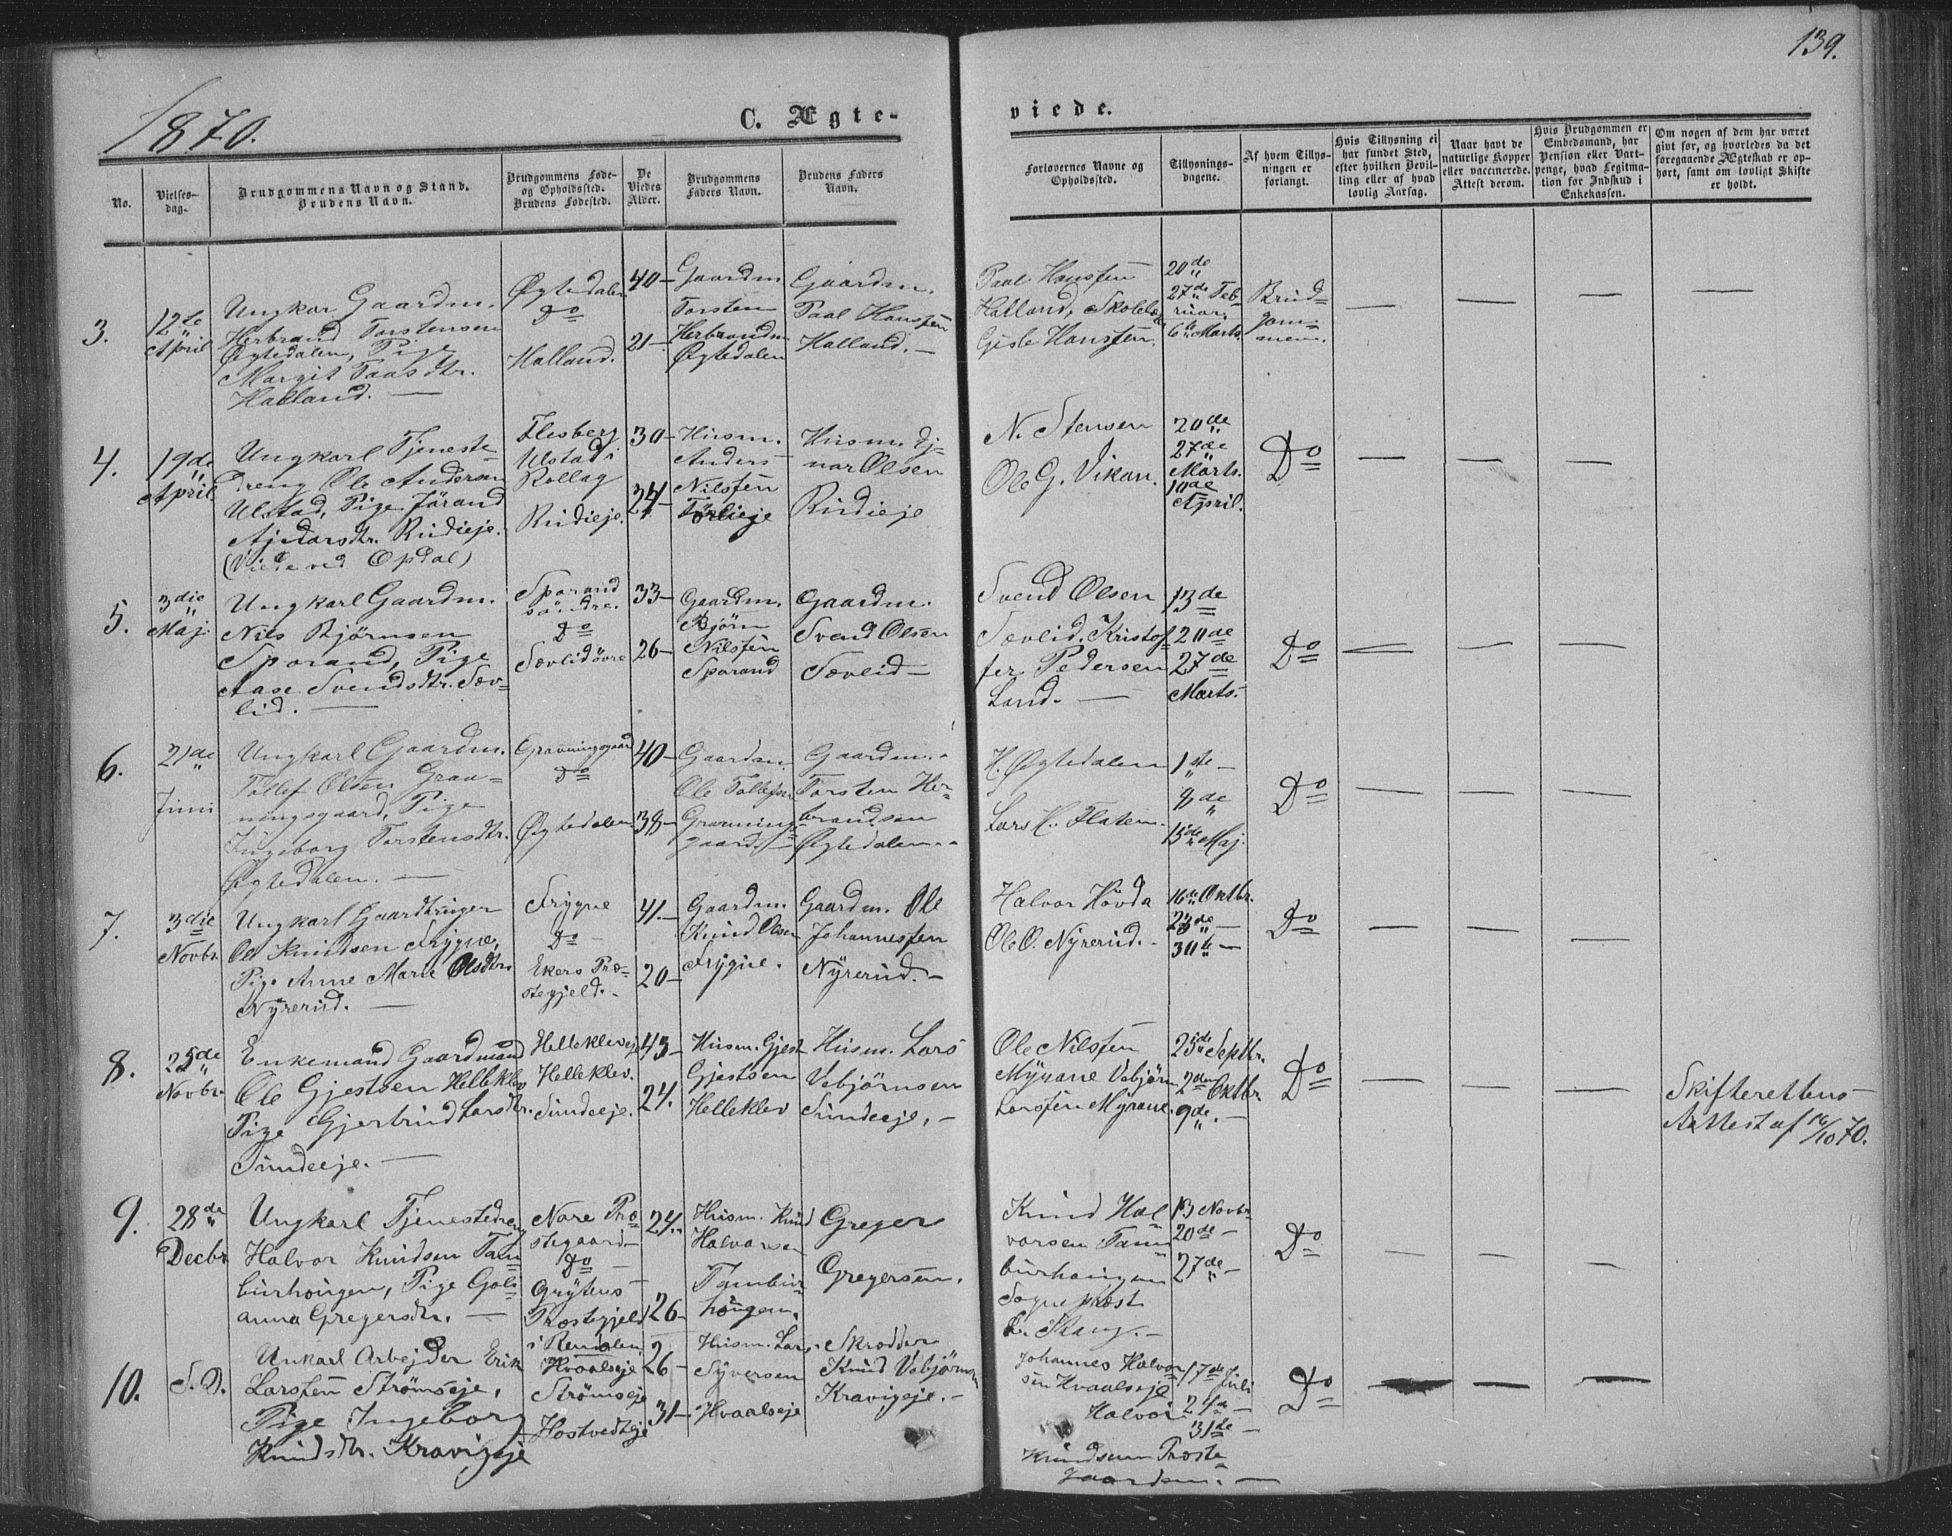 139.
1870.
C. Ægte-
viede.
No.
Vielses-
dag.
Brudgommens Navn og Stand.
Brudens Navn.
Brudgommens Føde-
og Opholdssted.
Brudens Fødested.
De
Viedes
Alder.
Brudgommens
Faders Navn.
Brudens Faders
Navn.
Forlovernes Navne og
Opholdssted.
Tillysnings-
dagene.
Af hvem Tillys-
ningen er
forlangt.
Hvis Tillysning ei
har fundet Sted,
efter hvilken Bevil-
ling eller af hvad
lovlig Aarsag.
Naar havt de
naturlige Kopper
eller vaccinerede.
Attest derom.
Hvis Brudgommen er
Embedsmand, har
Pension eller Vart-
penge, hvad Legitima-
tion for Indskud i
Enkekassen.
Om nogen af dem har været
givt før, og hvorledes da det
foregaaende Ægteskab er op-
hørt, samt om lovligt Skifte
er holdt.
3.
12te
April
Ungkar Gaardm.
Herbrand Torstensen
Øigtedalen, Pige
Margit Paasdtr.
Halland. —
Øgtedalen
Do
Halland.
40 —
21 —
Gaardm
Torsten
Herbrandsn
Øgtedalen
Gaardm.
Paal Hansen
Halland. —
Paal Hansen
Halland, Skolel.
Gisle Hansen.
20de
27de Feb-
ruar.
6te Marts.
Brud-
gom-
men.
— — — —
4.
19de
April
Ungkarl Tjeneste
dreng Ole Andersen
Ulstad, Pige Jørand
Ajnarsdtr. Rudieje.
(Viede ved Opdal)
Flesberg
Ulstad i
Rollag
Rudieje.
30 —
24 —
Husm.
Anders
Nilsen
Førlieje
Husm. Ej-
nar Olsen
Rudieje
N. Stensen
Ole G. Vikan.
20de
27de
Marts.
10de
April.
Do
— — —
5.
3die
Maj.
Ungkarl Gaardm.
Nils Bjørnsen
Sporand, Pige
Aase Svendsdtr. Sæv-
lid. —
Sporand
søndre.
Do
Sævlid øvre
33 —
26 —
Gaardm.
Bjørn
Nilsen
Sporand
Gaardm.
Svend Olsen
Sævlid —
Svend Olsen
Sevlid, Kristof-
fer Pedersen
Land. —
13de
20de
27de
Marts.
Do
— — —
6.
21de
Juni
Ungkarl Gaardm.
Tollef Olsen Gran-
ningsgaard, Pige
Ingeborg Torstensdtr.
Øgtedalen. —
Granningsgaard
Do
Øgtedalen.
40 —
38 —
Gaardm.
Ole Tollefsen
Granning-
gaard. —
Gaardm. -
Torsten Her-
brandsen
Øgtedalen. -
H. Øgtedalen
Lars H. Flaten.
1ste —
8de
15de Maj.
Do
— — —
7.
3die
Novbr.
Ungkarl Gaardbruger
Ole Knudsen Frygne,
Pige Anne Marie Olsdtr.
Nyrerud. —
Frygne
Do —
Ekers Præ-
stegjeld. -
41. —
20 —
Gaardm.
Knud Olsen
Frygne.
Gaardm. Ole
Johannesen
Nyrerud. —
Halvor Hovda
Ole O. Nyrerud. -
16de Oktbr.
23de —
30te —
Do
— — —
8.
25de
Novbr.
Enkemand Gaardmand
Ole Gjestsen Helleklev
Pige Gjertrud Larsdtr.
Sundeeje. —
Helleklev
Helleklev.
Sundeeje.
43 —
24.
Husm. Gjest
Gjestsen
Helleklev
Husm. Lars
Vebjørnsen
Sundeeje. —
Ole Nilsen
Myrane Vebjørn
Larsen Myrane.
25de Septbr.
2den Oktbr.
9de. —
Do
— — —
Skifterettens
Attest af 14/10 70.
9.
28de
Decbr
Ungkarl Tjenestedreng
Halvor Knudsen Tam-
burhougen, Pige Goli-
anna Gregersdtr. —
Nore Præ-
stegaard
Do —
Grytens
Præstegjeld
i Romsdalen
24.
26 —
Husm. Knud
Halvorsen
Tambur
hougen.
Greger
Gregersen.
Knud Hal
vorsen Tam
burhaugen
Sogneprest
L. Skang. —
13 Novbr.
20de —
27de —
Do
— — —
10.
S. D.
Unkarl Arbejder Erik
Larsen Strømseje,
Pige Ingeborg
Knudsdtr. Kravigeje
Hvaalseje
Strømseje
Hostvedteje
26 —
31 —
Husm. Lars
Syversen
Hvaalseje
Skrædder
Knud Vebjørnsen
Kravigeje. —
Johannes Halvor
sen Hvaalseje
Halvor
Knudsen Præste
gaarden. —
17de Juli
24de —
31de —
Do
— — —